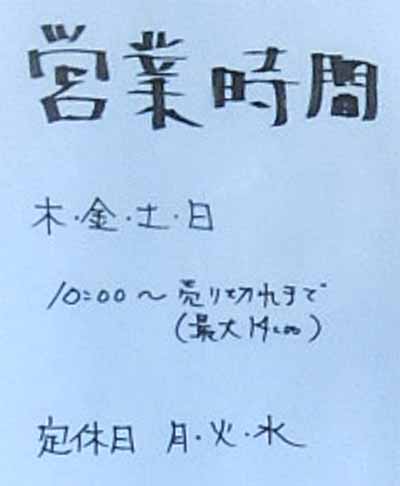 営業時間
木・金・土・日
10:00～売り切れまで
(最大14:00)
定休日 月・火・水